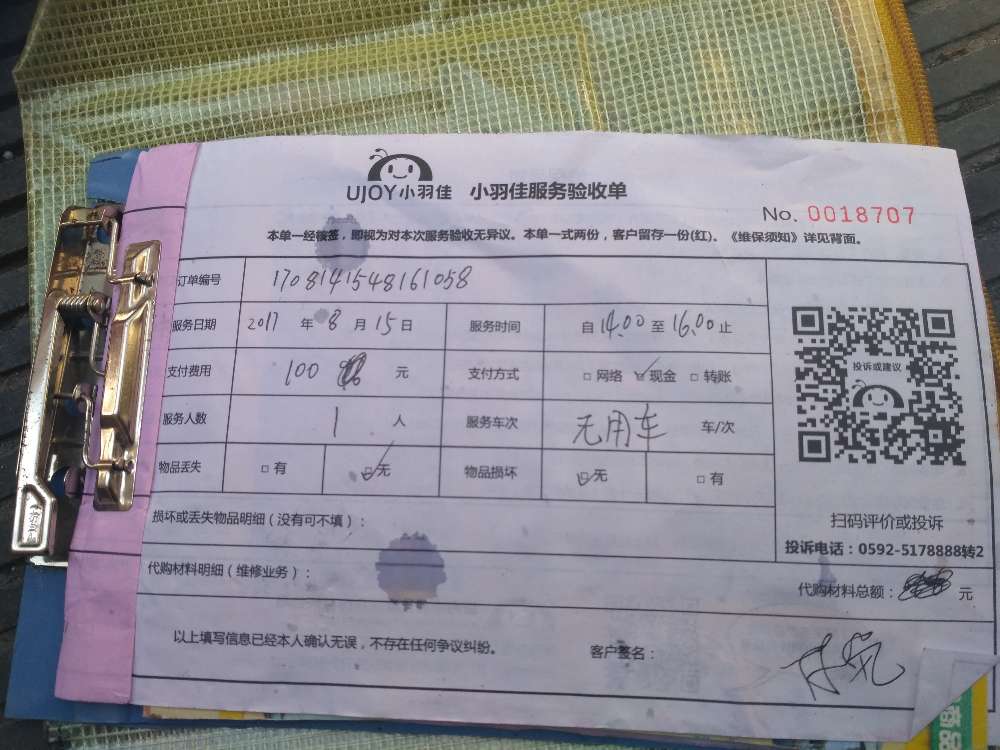 UJOY小羽佳 小羽佳服务验收单
No. 0018707
本单一经核签，即视为对本次服务验收无异议。本单一式两份，客户留存一份(红)。《维保须知》详见背面。
订单编号 1708141548161058
服务日期 2017 年 8 月 15 日 服务时间 自 14.00 至 16.00 止
支付费用 100 元 支付方式 □ 网络 ☑ 现金 □ 转账
服务人数 1 人 服务车次 无用车 车/次
物品丢失 □ 有 ☑ 无 物品损坏 ☑ 无 □ 有
投诉或建议
扫码评价或投诉
投诉电话：0592-5178888转2
损坏或丢失物品明细（没有可不填）：
代购材料明细（维修业务）：
代购材料总额： 元
以上填写信息已经本人确认无误，不存在任何争议纠纷。 客户签名：